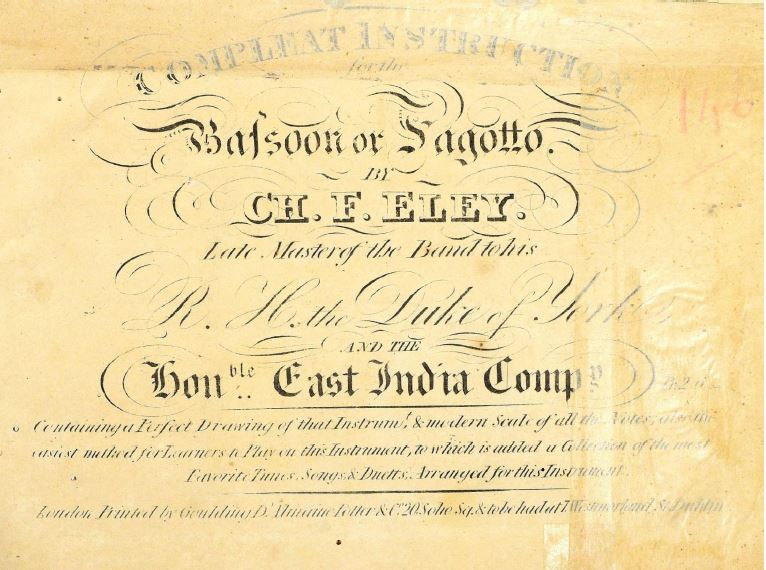 COMPLEAT INSTRUCTION
for the
Baſsoon or Fagotto.
BY
CH. F. ELEY.
Late Master of the Band to his
R. H. the Duke of York
AND THE
Honble East India Compy
Containing a Perfect Drawing of that Instrumt. & modern Scale of all the Notes, also the
easiest method for Learners to Play on this Instrument, to which is added a Collection of the most
Favorite Tunes, Songs & Duetts, Arranged for this Instrument.
London Printed by Goulding D'Almaine Potter & Co. 20 Soho Sq. & to be had at 7 Westmorland St. Dublin